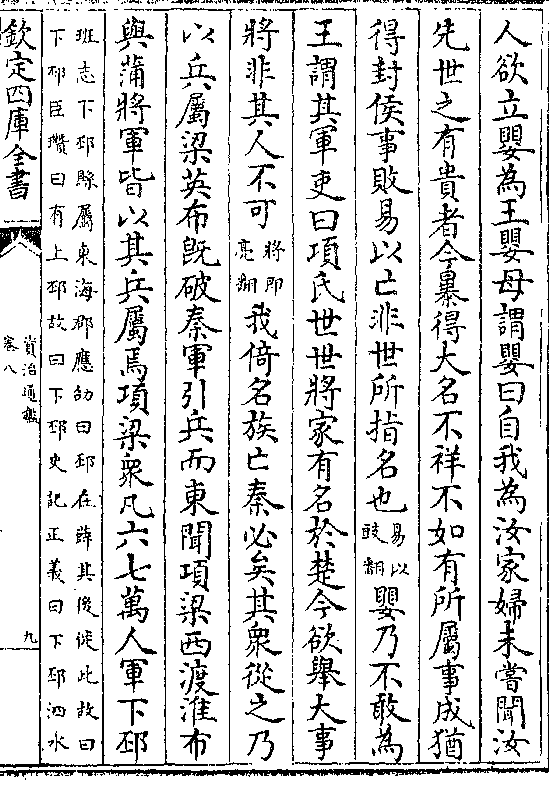 人欲立嬰為王嬰母謂嬰曰自我為汝家婦未嘗聞汝
先世之有貴者今暴得大名不祥不如有所屬事成猶
得封侯事敗易以亡非世所指名也易以豉翻嬰乃不敢為
王謂其軍吏曰項氏世世將家有名於楚今欲舉大事
將非其人不可將即亮翻我倚名族亡秦必矣其衆從之乃
以兵屬梁英布既破秦軍引兵而東聞項梁西渡淮布
與蒲將軍皆以其兵屬焉項梁衆凡六七萬人軍下邳
班志下邳縣屬東海郡應劭曰邳在薛其後徙此故曰
下邳臣瓚曰有上邳故曰下邳史記正義曰下邳泗水
欽定四庫全書
資治通鑑
卷八
九